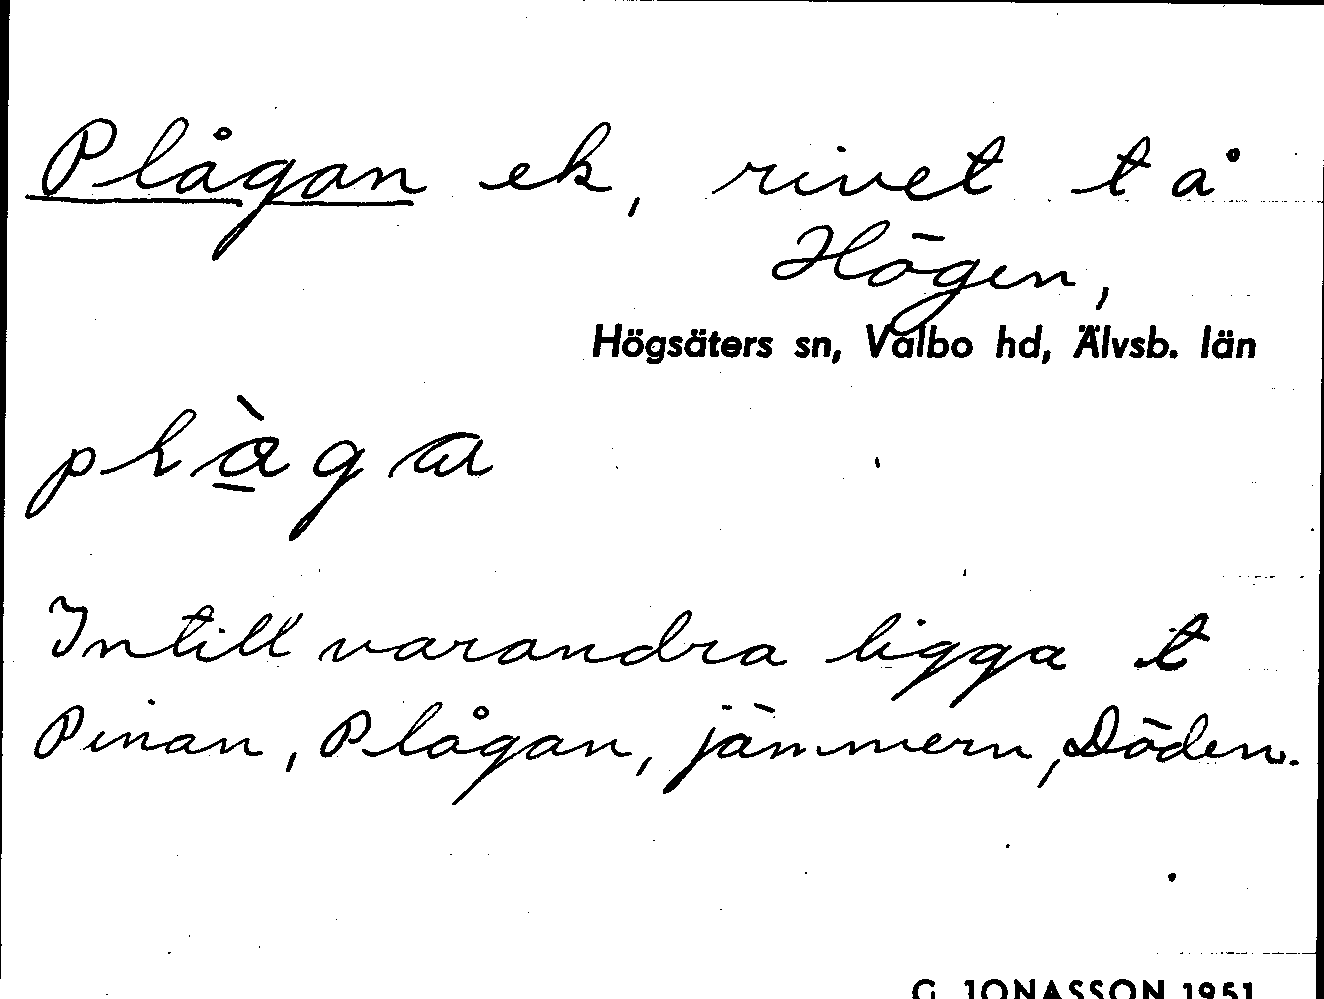 Plågan ek, rivet tå
Högen,
Högsäters sn, Valbo hd, Älvsb. län
plå̀ga
Intill varandra ligga t
Pinan, Plågan, jämmern, Döden.
G. JONASSON 1951